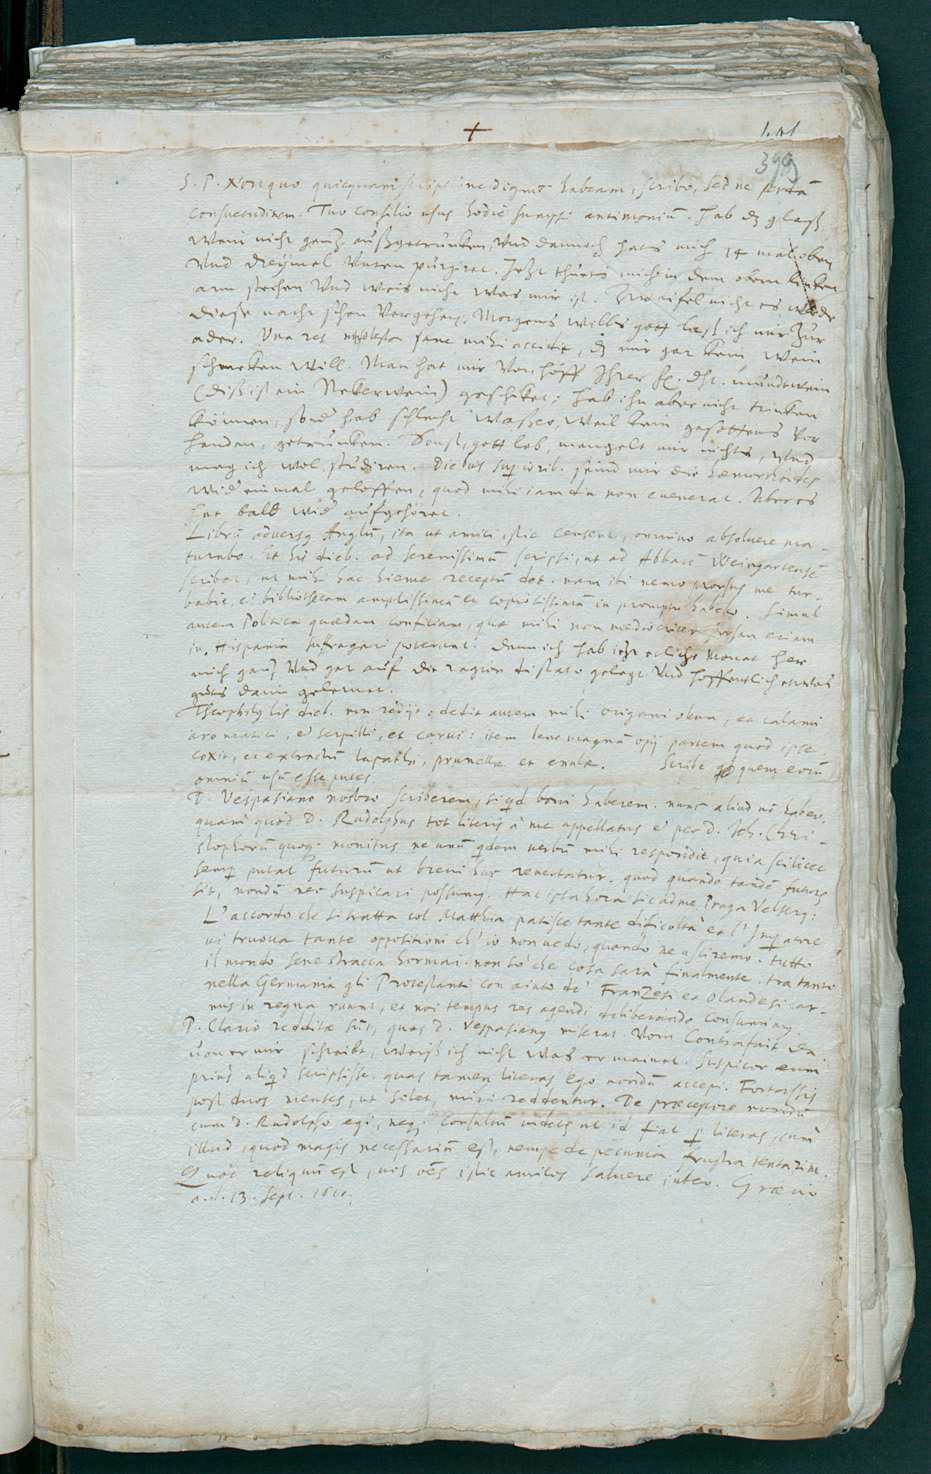 +
399
S. P. Non quo quicquam scriptione dignum habeam, scribo, sed ne
consuetudinem. Tuo consilio usus hodie sumpsi antimoniũ. Hab dz glaß
Wein nicht gantz außgetruncken, Und dannoch hats mich 14 mal oben
Und dreymal Unten purgiret. Jetzt thuets mich in dem obern lincken
arm stechen Und weis nicht was mir ist. Zweifel nicht es werde
diese nacht schon Vergehen. Morgens wills gott laß ich mir zur
ader. Una res molesta sane mihi accidit, dz mir gar kein Wein
schmecken will. Man hat mir Von hoff Ihrer fr. dht. mundtwein
(diß ist ein Nekerwein) geschiket; hab ihn aber nicht trinken
können, sond hab schlecht Wasser, weil kein gesottens Vor
handen, getruncken. Sonst, gott lob, mangelt mir nichts, Und
mag ich wol studiren. Diebus superiorib. seind mir die haemorrhoides
wid einmal geloffen, quod mihi iam diu non evenerat. Aber es
hat bald wid aufgehöret.
Librũ adversus Anglũ, ita ut amici istic censent, omnino absolvere ma-
turabo. Et his dieb. ad serenissimũ scripsi, ut ad Abbatẽ Weingartensẽ
scribat, ut mihi hac hieme receptũ det. nam ibi nemo prorsus me tur-
babit, et bibliothecam amplissimã et copiosissimã in promptu habebo. Simul
autem Politica quaedam conficiam, quae mihi non mediocriter etiam
in Hispania suffragari poterunt. Denn ich hab itzt etliche Monat her
mich gantz Und gar auf die ragion di stato gelegt Und hoffentlich etwas
guts darin gelernet.
Theophilus his dieb. non redijt: dedit autem mihi origani oleum, et calami
aromatici, et serpilli, et carui: item bene magnã opij partem quod ipse
coxit, et extractum lapathi, prunellae et enulae. Scribe quem eorũ
omniũ usũ esse putes.
D. Vespasiano nostro scriberem, si qd boni haberem. nunc aliud nõ habeo,
quam quod D. Rudolphus tot literis à me appellatus et per D. Joh. Chri-
stophorũ quoq. monitus ne unũ qdem verbũ mihi respondit, quia scilicet
semp putat futurũ ut brevi huc revertatur. quod quando tandẽ futurũ
sit, nondũ nec suspicari possum. Hac ipsa hora sic ad me Praga Velserus:
L'accordo che si tratta col Matthia patisce tante dificoltà et l'Imperatore
vi truova tante oppositioni ch'io non vedo, quando ne usciremo. tutto
il mondo sene stracca hormai. non sò che cosa sarà finalmente. tra tanto
nella Germania gli Protestanti con aiuto de' Franzesi et Olandesi ar-
mis in regna ruunt, et noi tempus res agendi deliberando consumimus.
P. Clario redditae sũt, quas D. Vespasianus miserat. Vom Contrafait da
von er mir schreibt, weiß ich nicht was er mainet. Suspicor eum
prius aliqd scripsisse, quas tamen literas ego nondũ accepi. Fortassis
post duos menses, ut solet, mihi reddentur. De praeceptore nondũ
cum D. Rudolpho egi, neq. consultũ videtur ut id fiat p literas, cum
illud, quod magis necessariũ est, nempe de pecunia frustra tentarim.
Quod reliquũ est, vos oẽs istic amicos salvere iubeo. Graecio
a.d. 13. Sept. 1610.